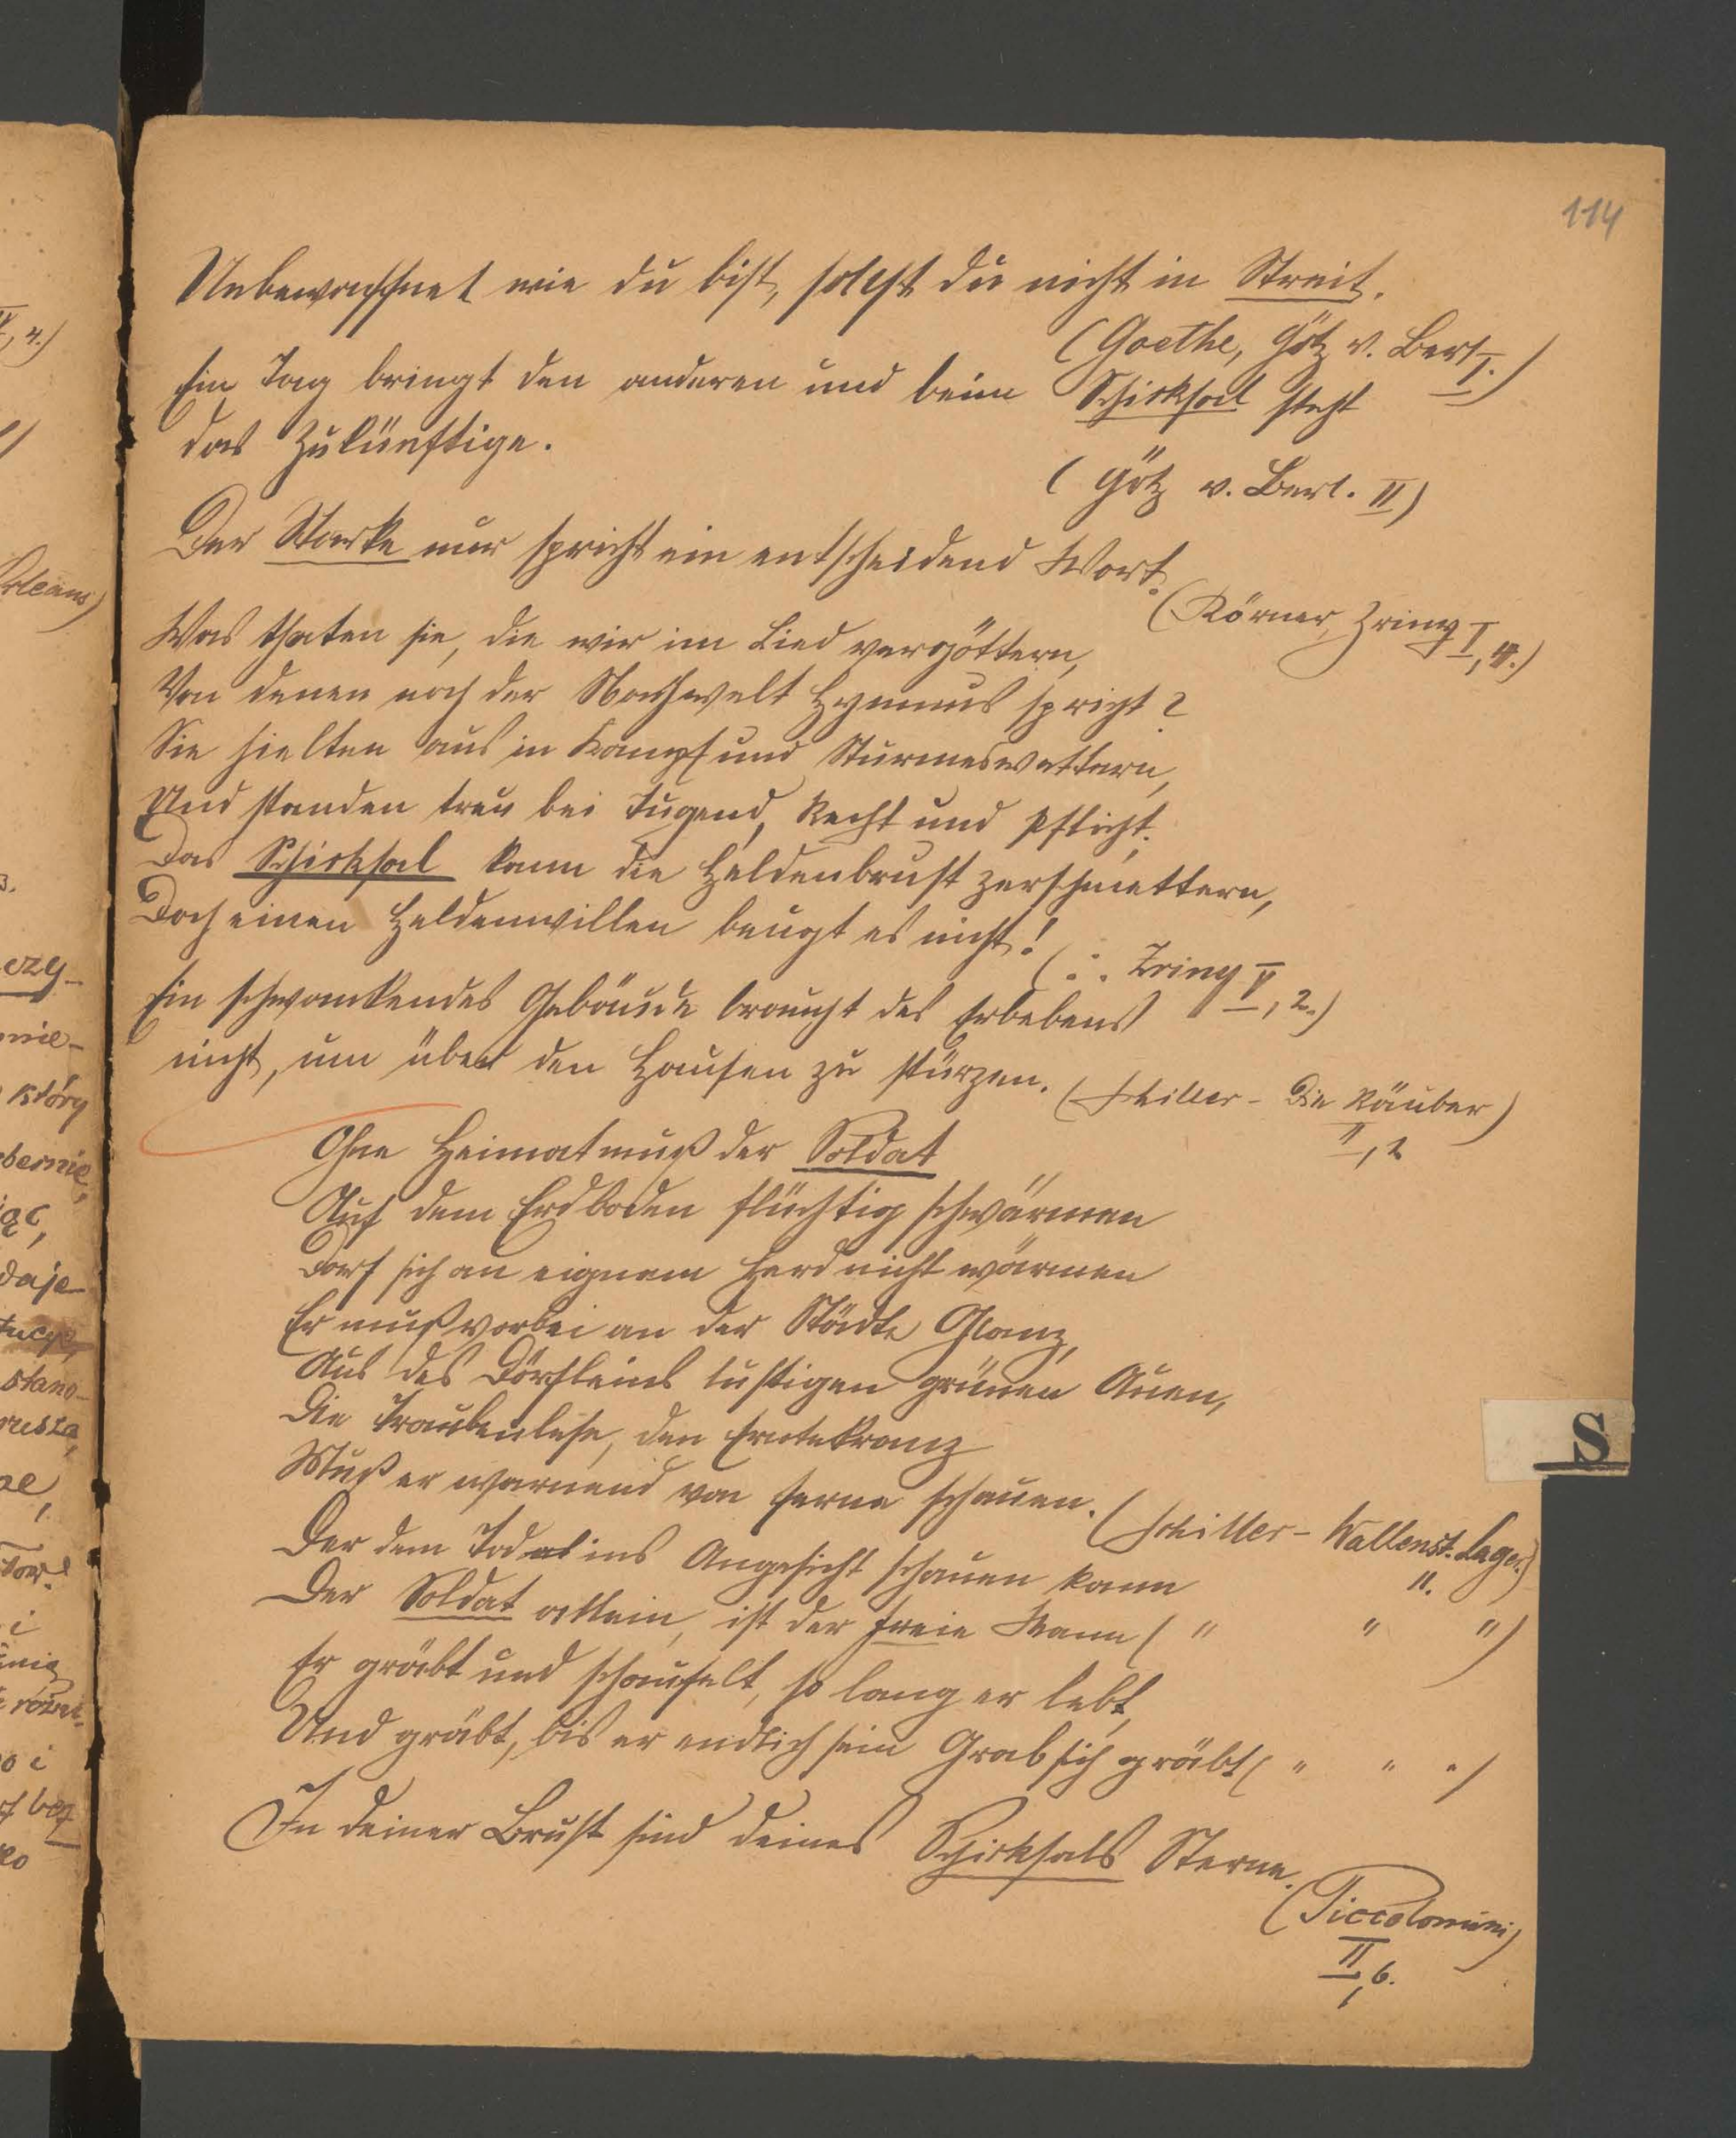 114
Unbewaffnet wie du bist, sollst du nicht in Streit.
(Goethe, Götz v. Berl. I.)
Ein Tag bringt den anderen und beim Schicksal steht
das Zukünftige.
(Götz v. Berl. II)
Der Starke nur spricht ein entscheidend Wort.
(Körner, Zriny I, 4.)
Was thaten sie, die wir im Lied vergöttern,
Von denen noch der Nachwelt Hymnus spricht?
Sie hielten aus in Kampf und Sturmeswettern,
Und standen treu bei Tugend, Recht und Pflicht.
Das Schicksal kann die Heldenbrust zerschmettern,
Doch einen Heldenwillen beugt es nicht!
( : . Zriny V, 2.)
Ein schwankendes Gebäude braucht des Erbebens
nicht, um übern den Haufen zu stürzen. (Schiller - Die Räuber)
II, 2
Ohne Heimat muß der Soldat
Auf dem Erdboden flüchtig schwärmen
Darf sich an eignem Herd nicht wärmen
Er muß vorbei an der Städte Glanz,
Aus des Dörfleins lustigen grünen Auen,
Die Traubenlese, den Erntekranz
Muß er wandernd von ferne schauen. (Schiller - Wallenst. Lager)
11.
Der dem Tod ins Angesicht schauen kann
Der Soldat allein, ist der freie Mann ( " " ")
Er gräbt und schaufelt, so lang er lebt,
Und gräbt, bis er endlich sein Grab sich gräbt ( " " ")
In deiner Brust sind deines Schicksals Sterne.
(Piccolomini)
II, 6.
S